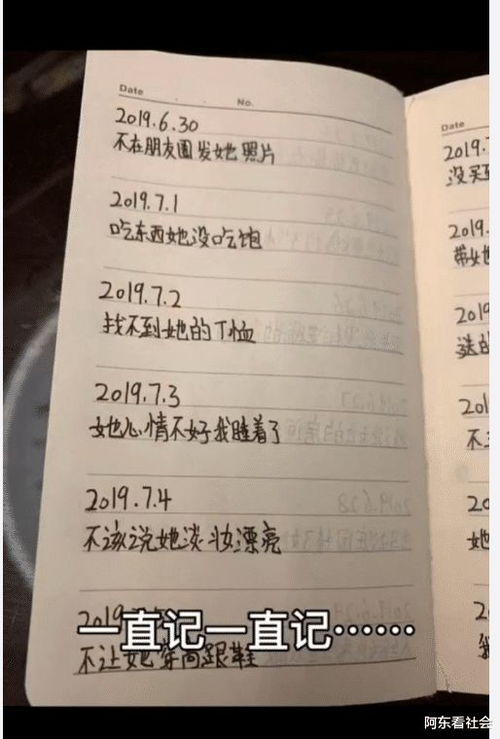 Date
No.
2019.6.30
不在朋友圈发她照片
2019.7.1
吃东西她没吃饱
2019.7.2
找不到她的T恤
2019.7.3
她心情不好我睡着了
2019.7.4
不该说她淡妆漂亮
2019.
一直记一直记……
不让她穿高跟鞋
Date
2019.7
没买
2019.
带她
2019
选的
201
不
20
她
2
阿东看社会